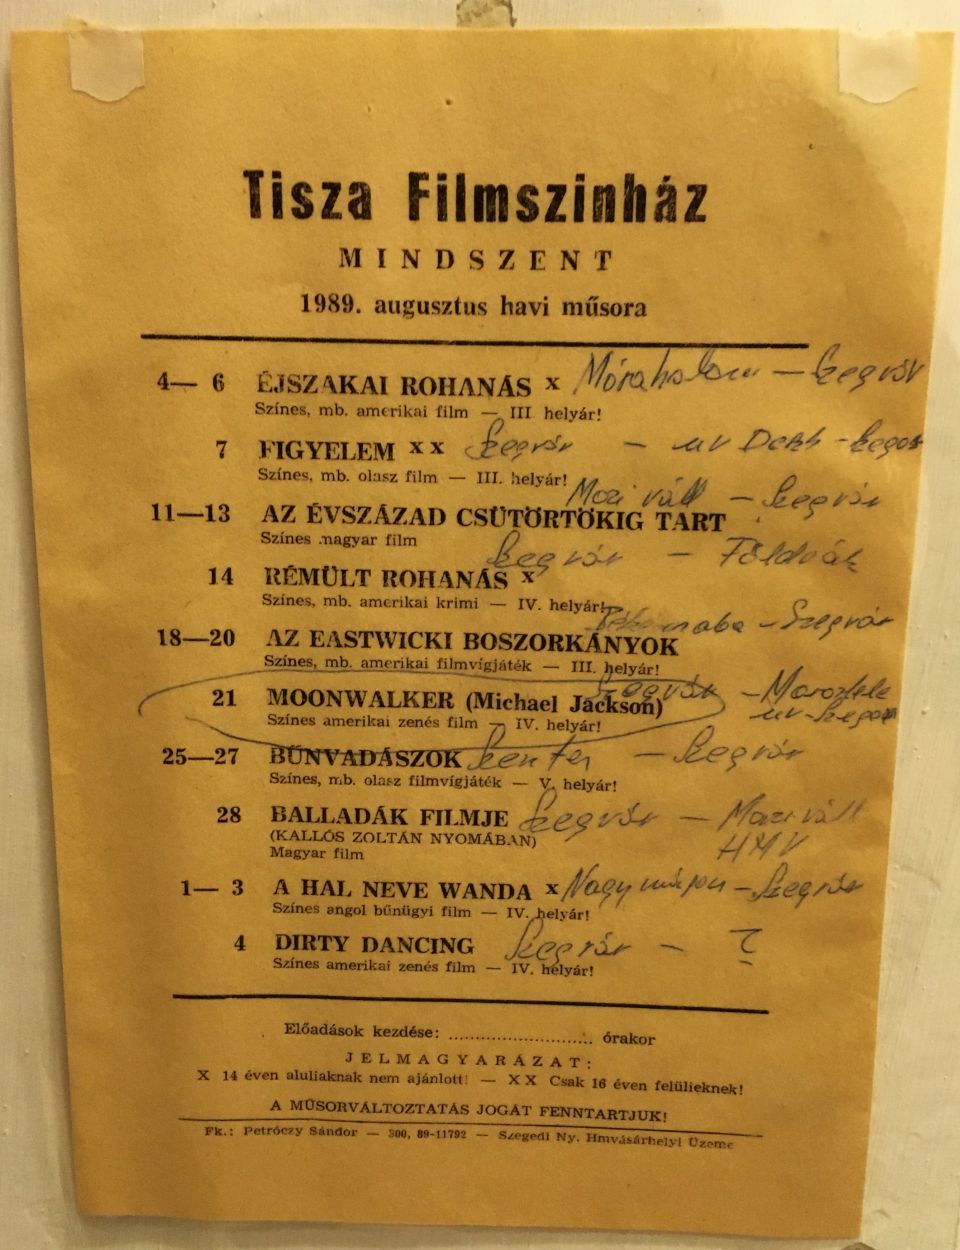 Tisza Filmszinház
MINDSZENT
1989. augusztus havi műsora
4— 6 ÉJSZAKAI ROHANÁS x Mórahalom — Szegvár
Színes, mb. amerikai film — III. helyár!
7 FIGYELEM x x Szegvár —
Színes, mb. olasz film — III. helyár!
Mozi váll — Szegvár
11—13 AZ ÉVSZÁZAD CSÜTÖRTÖKIG TART
Színes magyar film
Szegvár — Földvár
14 RÉMÜLT ROHANÁS x
Színes, mb. amerikai krimi — IV. helyár!
Békéscsaba — Szegvár
18—20 AZ EASTWICKI BOSZORKÁNYOK
Színes, mb. amerikai filmvígjáték — III. helyár!
Szegvár —
21 MOONWALKER (Michael Jackson)
Színes amerikai zenés film — IV. helyár!
25—27 BŰNVADÁSZOK Szentes — Szegvár
Színes, mb. olasz filmvígjáték — V. helyár!
28 BALLADÁK FILMJE Szegvár — Mozi váll
(KALLÓS ZOLTÁN NYOMÁBAN) HMV
Magyar film
1— 3 A HAL NEVE WANDA x — Szegvár
Színes angol bűnügyi film — IV. helyár!
4 DIRTY DANCING Szegvár — ?
Színes amerikai zenés film — IV. helyár!
Előadások kezdése: ............................ órakor
JELMAGYARÁZAT:
X 14 éven aluliaknak nem ajánlott! — XX Csak 16 éven felülieknek!
A MŰSORVÁLTOZTATÁS JOGÁT FENNTARTJUK!
Fk.: Petróczy Sándor — 300, 89-11792 — Szegedi Ny. Hmvásárhelyi Üzeme